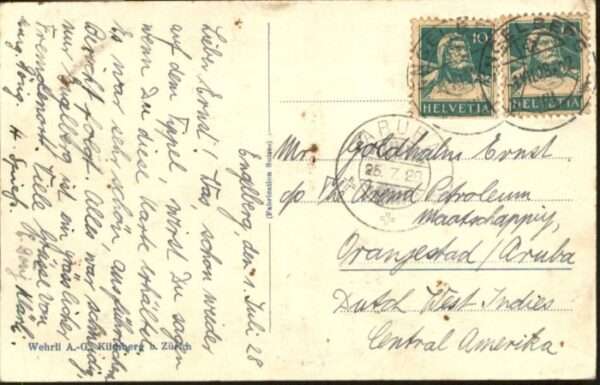 Engelberg, den 1. Juli 28
Lieber Ernst! Was, schon wieder
auf dem Tippel, wirst Du sagen
wenn Du diese Karte erhältst.
Es war sehr schön, ausführlicher
Bericht folgt. Alles war
nur Engelberg ist ein grässlicher
Fremdenort. Viele Grüsse von
(Fabrication Suisse)
Wehrli A.-G., Kilchberg b. Zürich
10
HELVETIA
HELVETIA
ENGELBERG
ARUBA
25.7.28
Mr. Goldhahn Ernst
c/o The Arend Petroleum
Maatschappij,
Oranjestad / Aruba
Dutch West Indies
Central Amerika